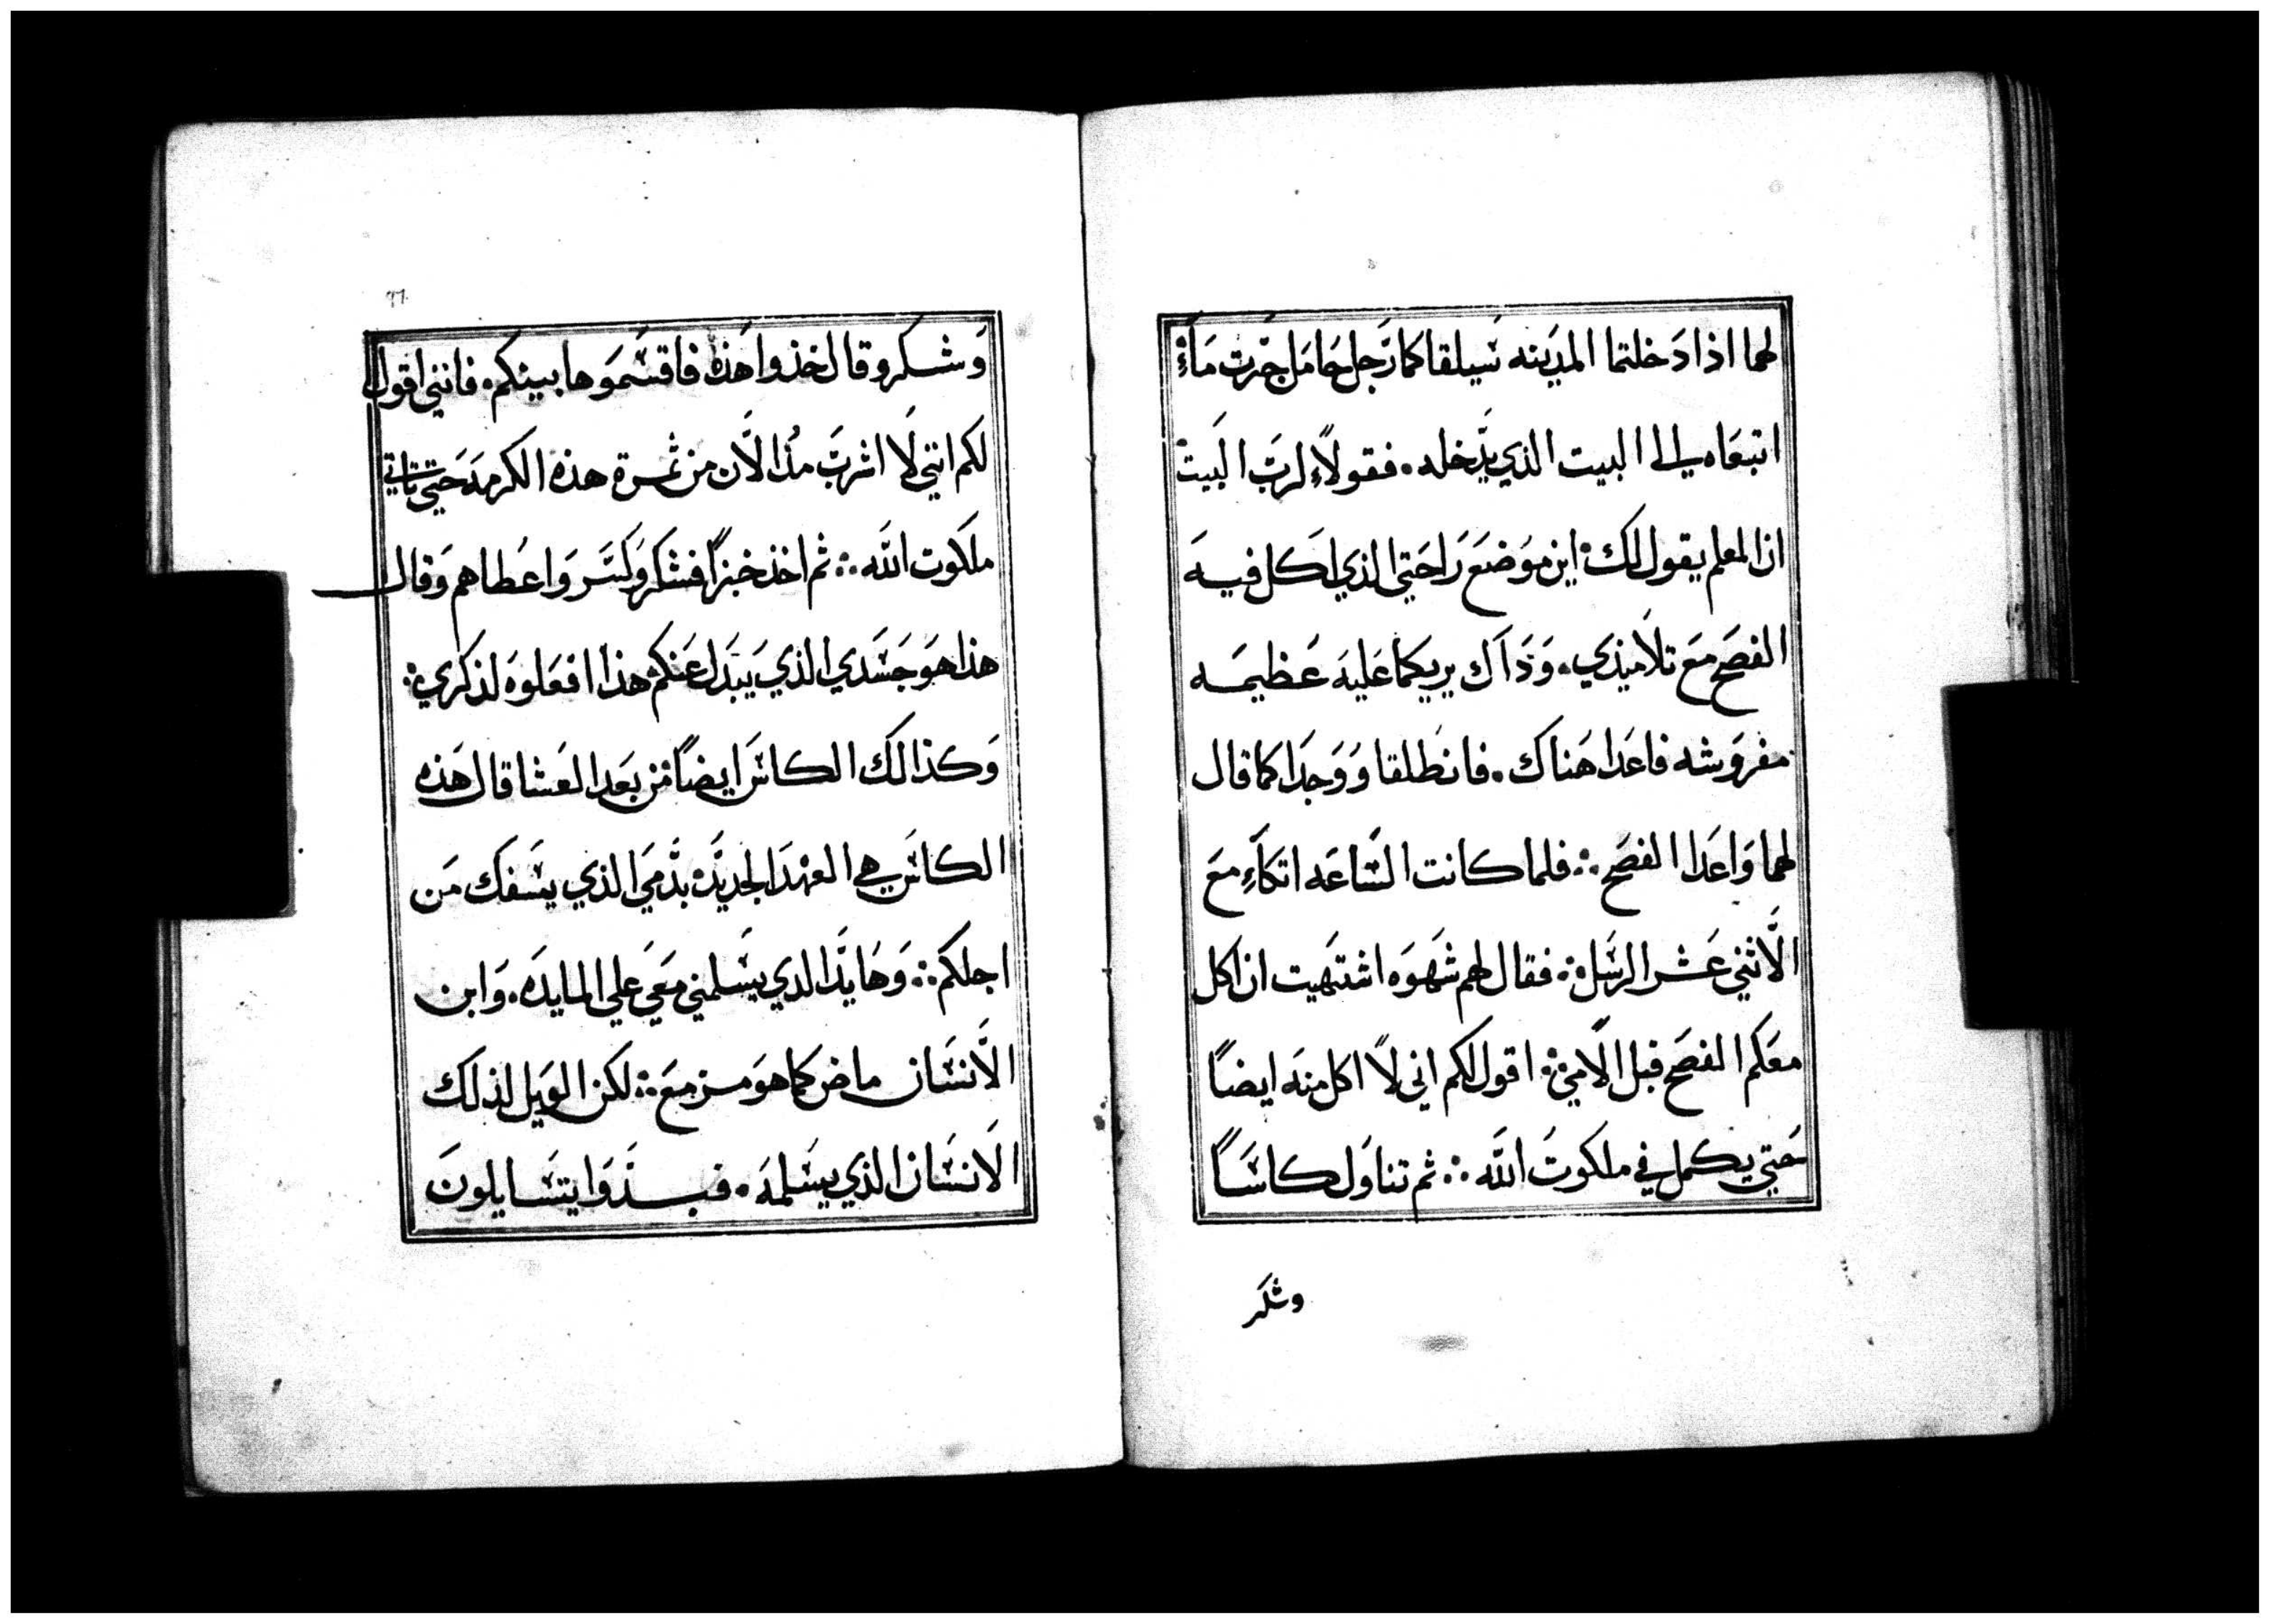 لهما اذا دَخلتما المديَنه سَيلقاكما رَّجل حَامَل جْرت مَاءْ
اتبعَاه الي البيت الذي يدّخله . فقولاً لربّ البَيتْ
ان المعلم يقول لك : اين موَضعَ رَاحَتي الذي اكل فيهَ
الفصَح معَ تلاميذي . وَذَاك يريكما عَليهَ عَظيمَه
مفروَشه فاعَدا هَناك . فانطَلقا وَوَجدَا كما قال
لهما وَاعَدا الفصَح :. فلما كانت السَّاعَه اتكاءَ معَ
الاّثني عَشر الرسَّل : فقال لهم شَهوَه اشتهَيت ان اكل
معَكم الفصَح قبل الاَمي : اقول لكم اني لاَ اكل منهَ ايضاً
حَتي يكمل في ملكوتَ اللَّه :. ثم تناوَل كاسَاً
وشكَر
٩٦
وَشكر وقال خذوا هَذه فاقسَّموَها بينكم . فانني اقول
لكم انني لَا اشربَ مُذ الاَّن من ثمرة هذه الكرمهَ حَتي تاتي
ملكَوت اللَّه :. ثم اخذ خبزاً فشكر وَكسَّر وَاعُطاهم وَقال
هذا هوَ جَسَدي الذي يَبَدل عَنكم هذا افعَلوهَ لذكري :
وَكذالك الكاسَ ايضاً من بعَد العَشا قال هَذه
الكاسَ هي العهْدَ الجديدَّه بدَّميَ الذي يسَفك مَن
اجلكم :. وَهَا يدَّا لدي يسَلمني معَيَ علي المايدَه . وَابن
الاَّنسَان ماض كما هوَ مزمعَ :. لكن الوَيل لذلك
الاَنسَان الذي يسَلمهَ . فبدَوَا يتسَايلونَ